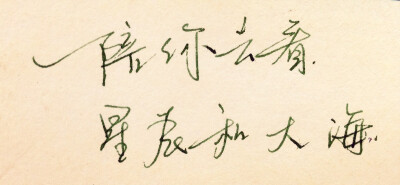 陪你去看
星辰和大海